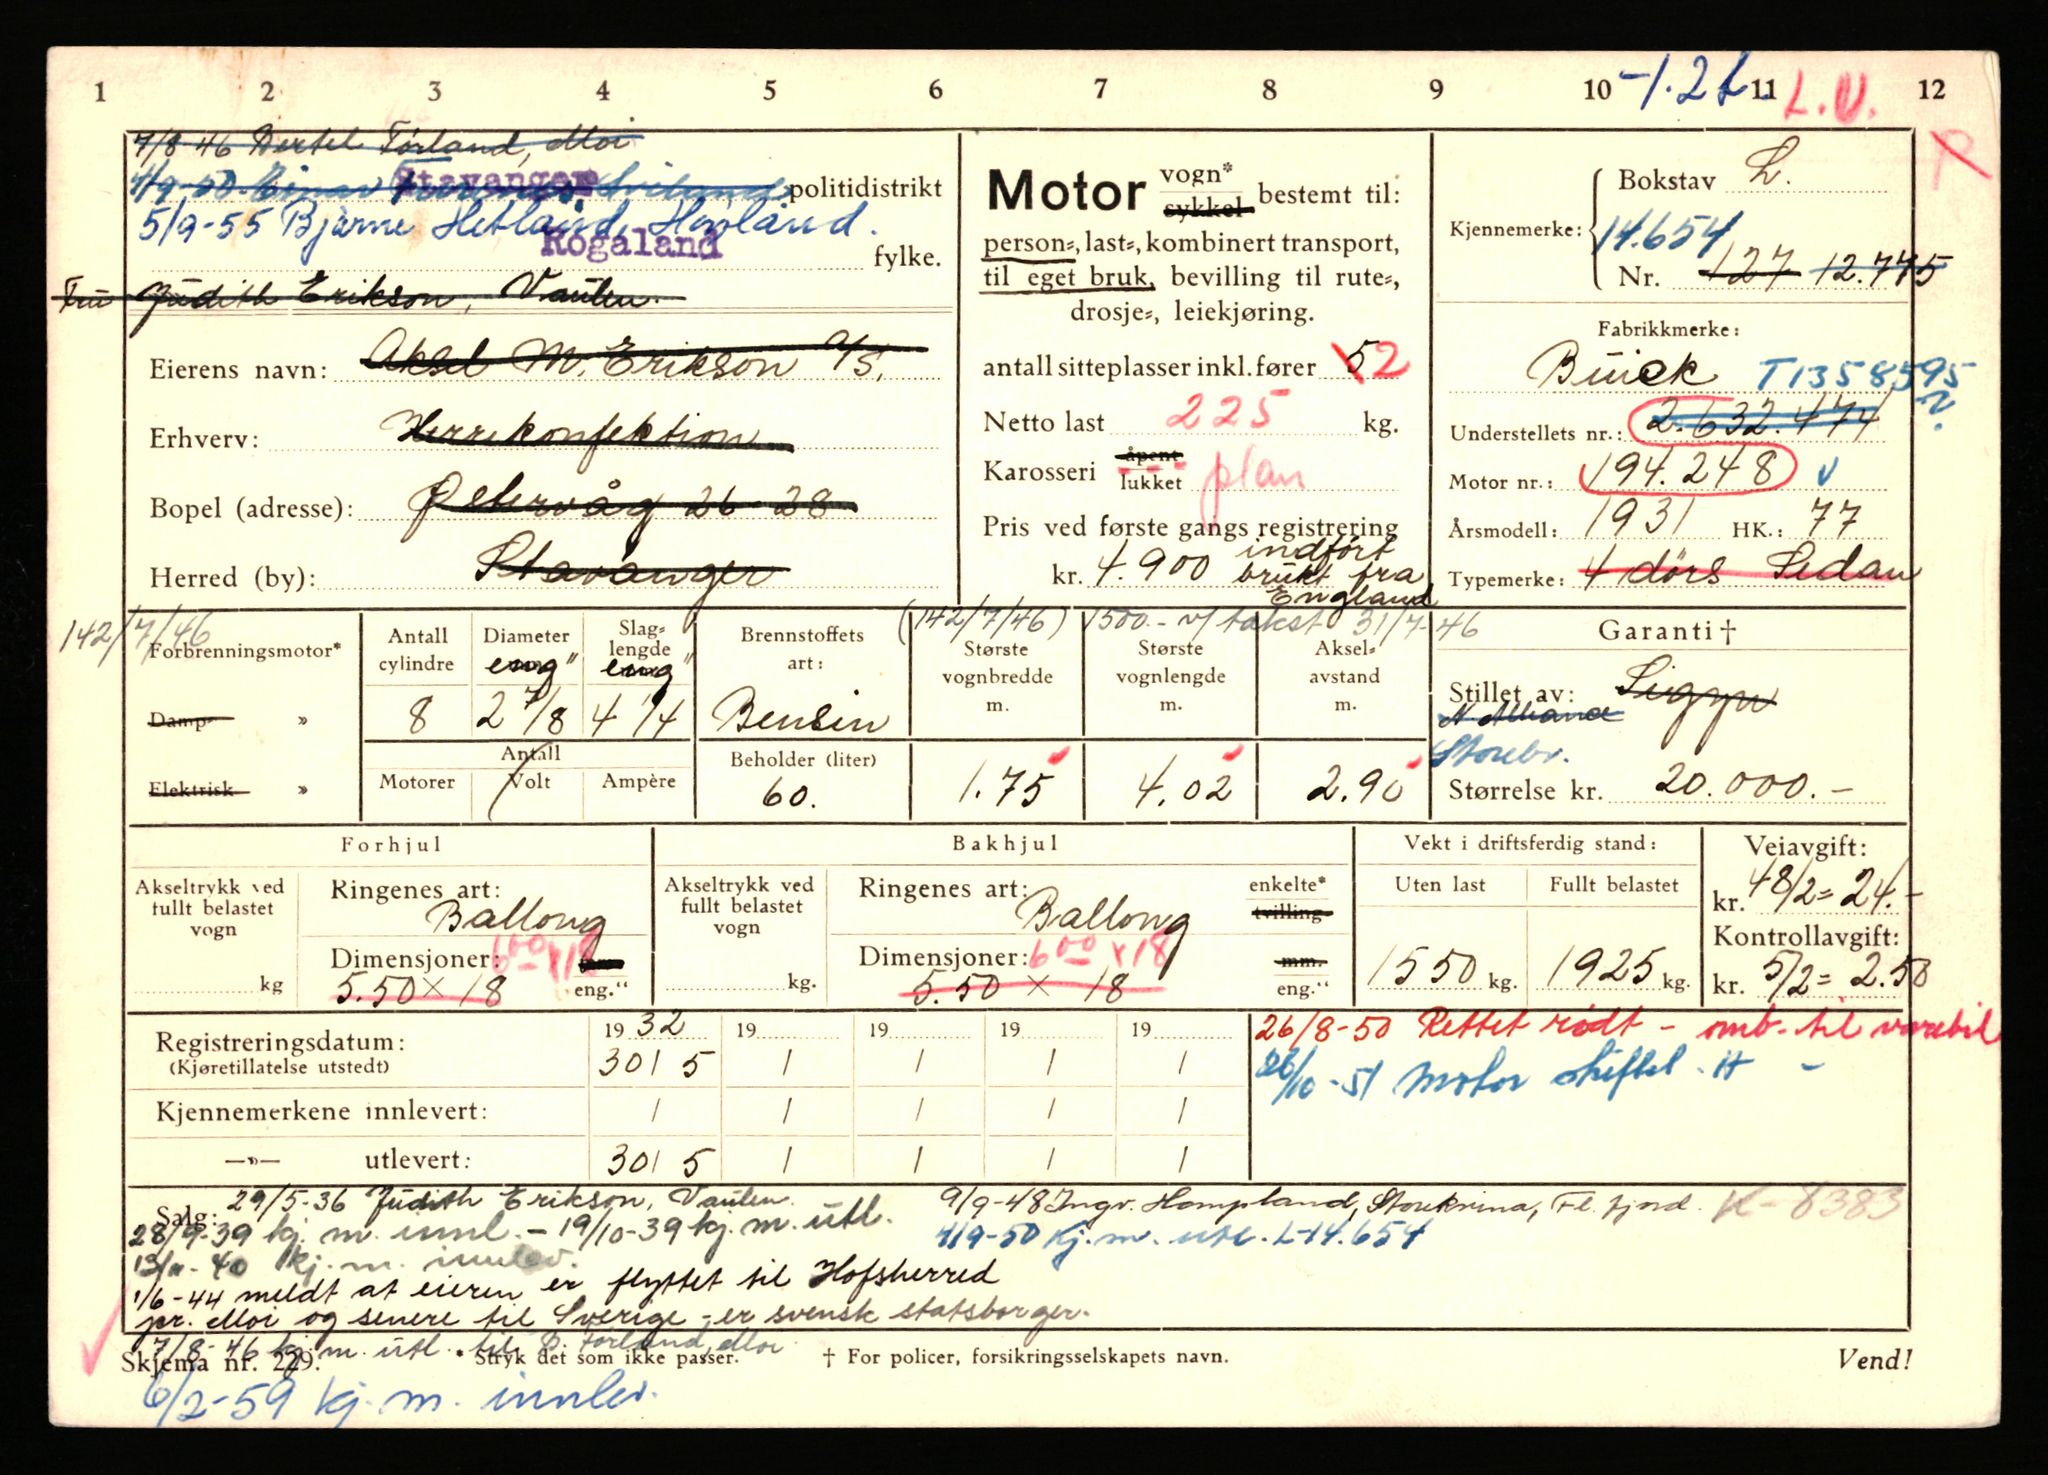 1 2 3 4 5 6 7 8 9 10 -1.2t. 11 L.V. 12
7/8-46 Bertel Førland, Moi
4/9-50 Einar
Stavanger politidistrikt
5/9-55 Bjarne Hetland, Hovland.
Rogaland fylke.
Fru Judith Erikson, Vaulen.
Eierens navn: Aksel M. Erikson A/S.
Erhverv: Herrekonfektion
Bopel (adresse): Østervåg 26-28
Herred (by): Stavanger
Motor vogn* sykkel bestemt til:
person=, last=, kombinert transport,
til eget bruk, bevilling til rute=,
drosje=, leiekjøring.
antall sitteplasser inkl. fører 5 2
Netto last 225 kg.
Karosseri åpent lukket plan
Pris ved første gangs registrering
kr. 4.900 indført brukt fra England
Kjennemerke: Bokstav L.
14.654
Nr. 127 12.775
Fabrikkmerke:
Buick T1358595
Understellets nr.: 2.632.474 ?
Motor nr.: 194.248 v
Årsmodell: 1931 HK.: 77
Typemerke: 4 dørs Sedan
142/7/46 (142/7/46) 1500.- v/takst 31/7-46
Forbrenningsmotor*
Damp= »
Elektrisk »
Antall cylindre 8
Diameter eng" 2 7/8
Slag=lengde eng" 4 1/4
Antall
Motorer Volt Ampère
Brennstoffets art: Bensin
Beholder (liter) 60.
Største vognbredde m. 1.75
Største vognlengde m. 4.02
Aksel=avstand m. 2.90
Garanti †
Stillet av: Sigyn
N. Alliance
Storebr.
Størrelse kr. 20.000.-
Forhjul
Akseltrykk ved fullt belastet vogn kg
Ringenes art: Ballong
Dimensjoner: 600 x 18
5.50 x 18 "eng."
Bakhjul
Akseltrykk ved fullt belastet vogn kg.
Ringenes art: Ballong enkelte* tvilling
Dimensjoner: 600 x 18 mm.
5.50 x 18 eng."
Vekt i driftsferdig stand:
Uten last Fullt belastet
1550 kg. 1925 kg.
Veiavgift:
kr. 48/2= 24.-
Kontrollavgift:
kr. 5/2= 2.50
Registreringsdatum:
(Kjøretillatelse utstedt)
19 32 19 19 19 19
30/5 / / / /
Kjennemerkene innlevert: / / / / /
—»— utlevert: 30/5 / / / /
26/8-50 Rettet rødt - omb. til varebil
26/10-51 Motor skiftet.
Salg: 29/5-36 Judith Erikson, Vaulen.
28/9-39 kj. m. innl. - 19/10-39 kj. m. utl.
13/11-40 kj. m. innlev.
1/6-44 meldt at eieren er flyttet til Hofsherred
pr. Moi og senere til Sverige, er svensk statsborger.
9/9-48 Ingv. Hompland, Storekvina, Fl. fjord. K-8383
4/9-50 Kj. m. utl. L-14.654
7/8-46 kj. m. utl. til B. Førland, Moi
Skjema nr. 229. * Stryk det som ikke passer. † For policer, forsikringsselskapets navn. Vend!
6/2-59 kj. m. innlev.